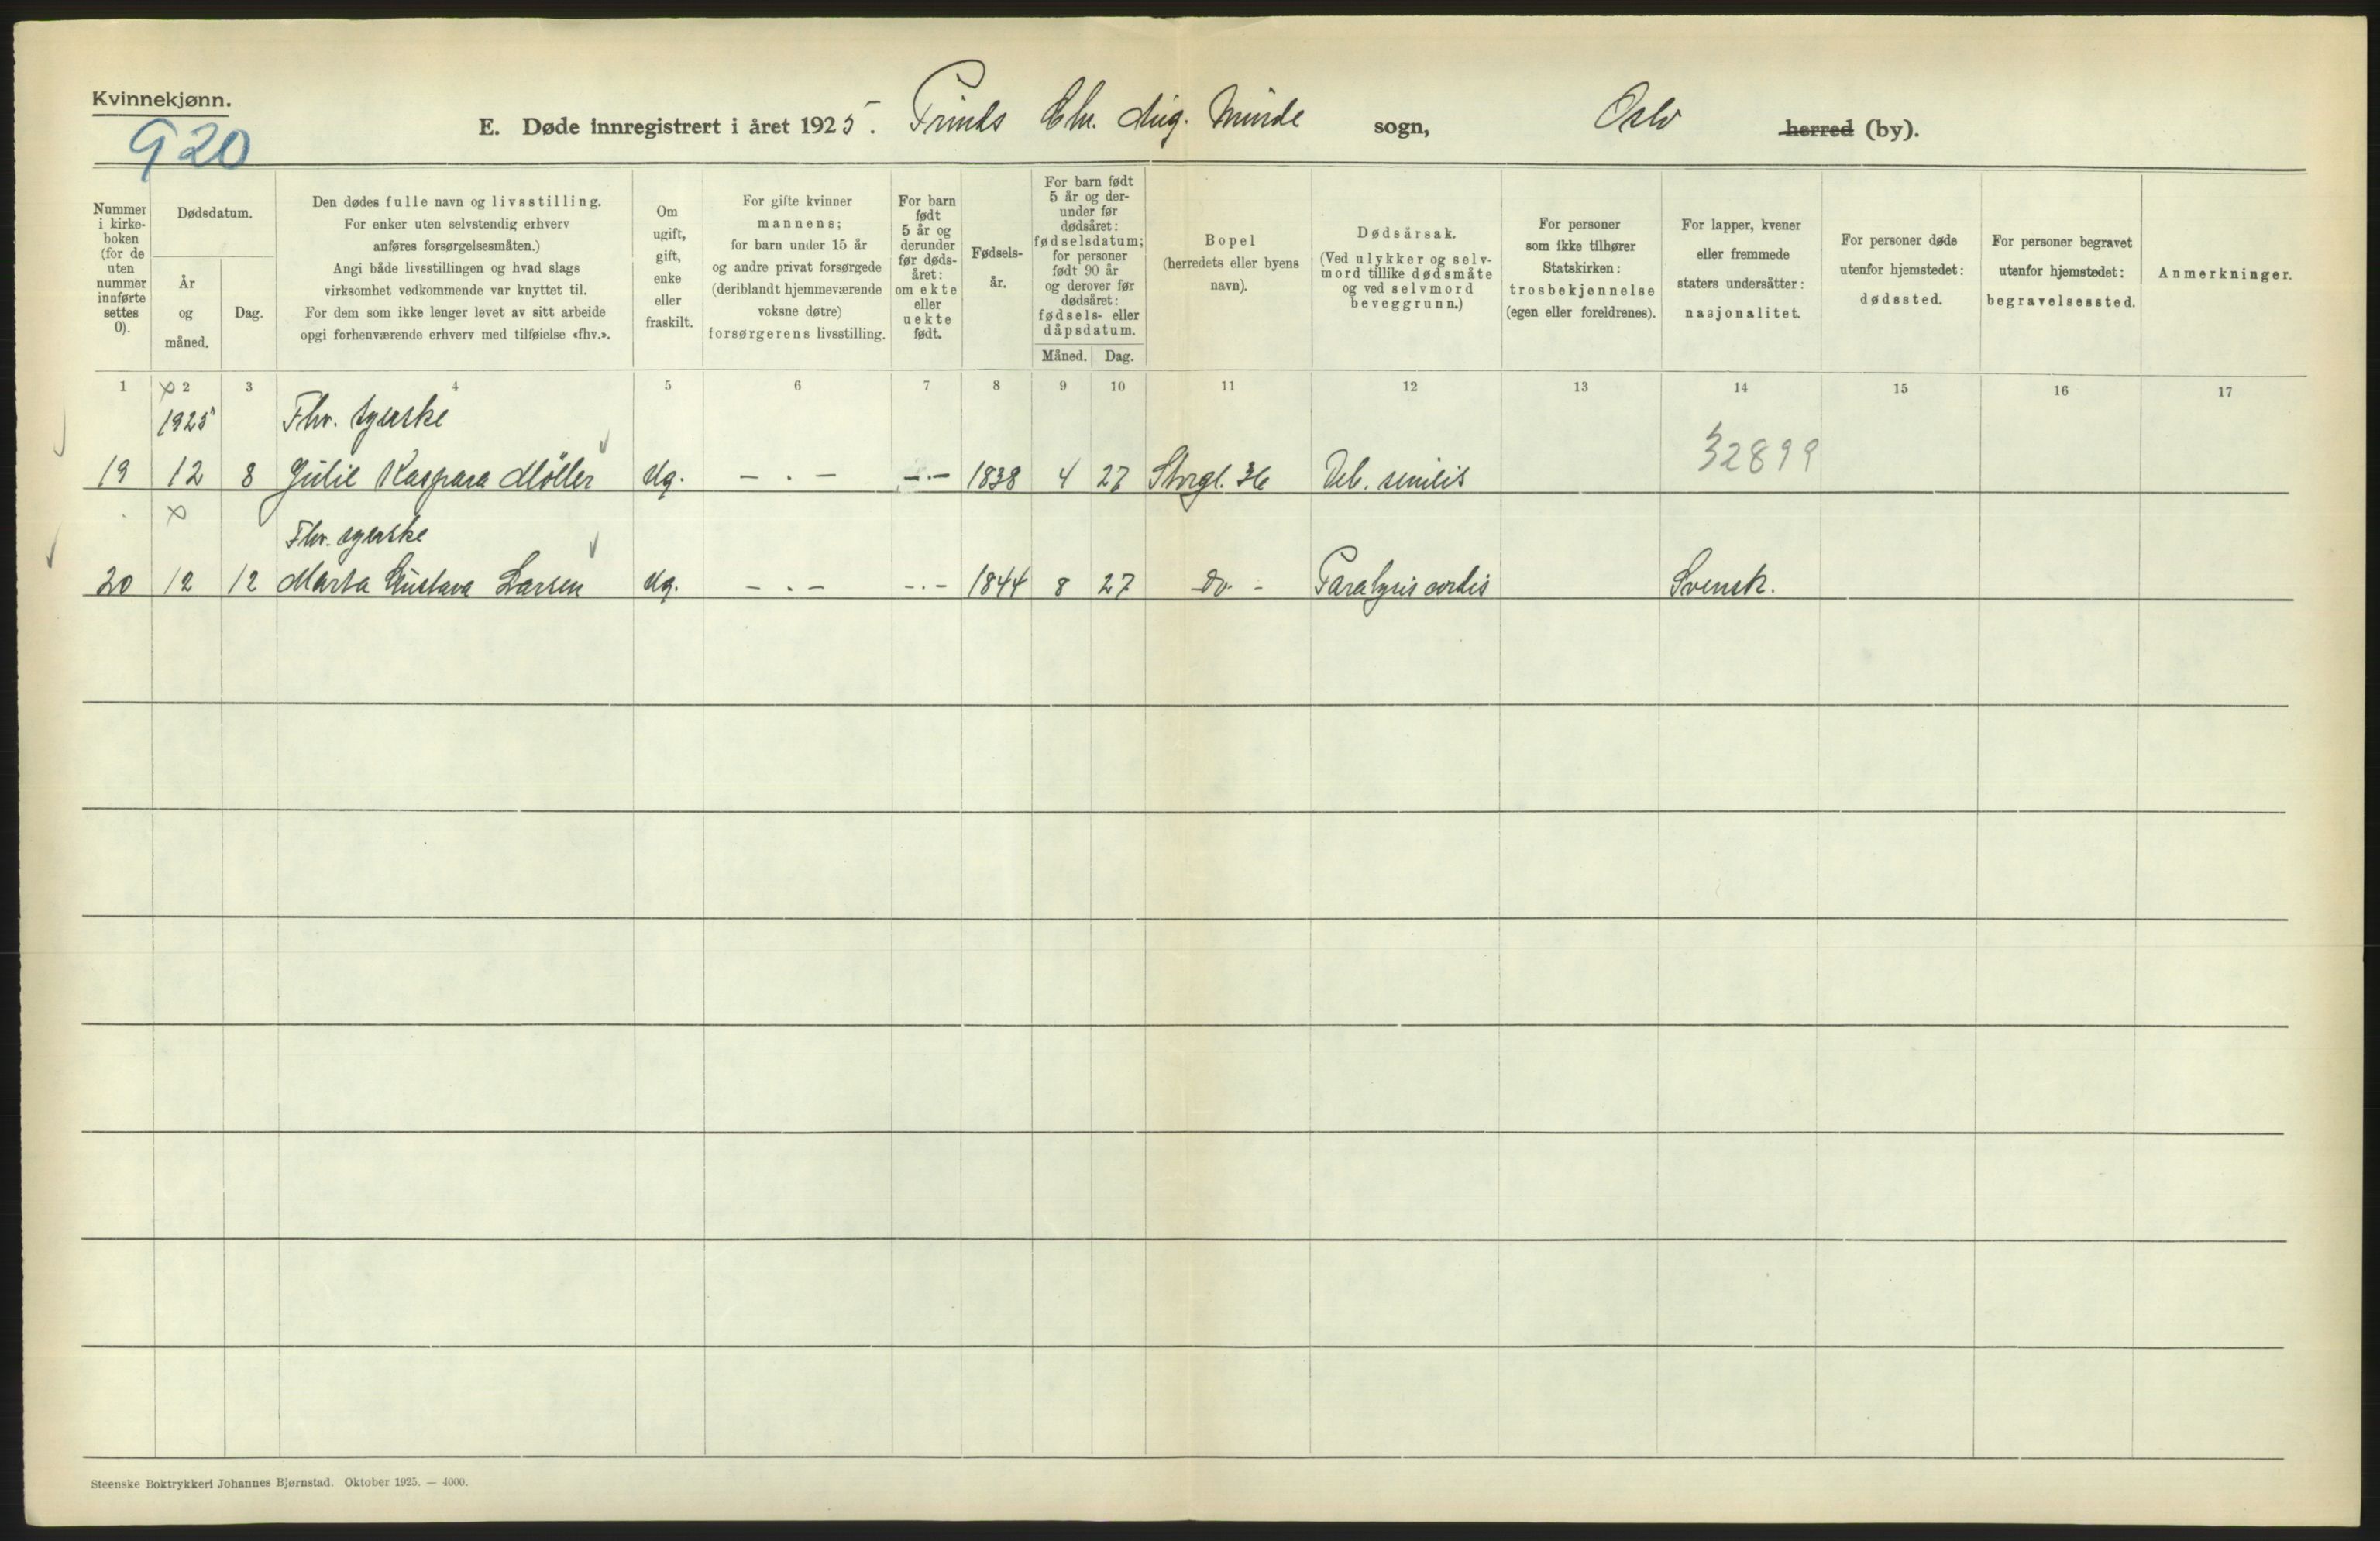 Kvinnekjønn.
920
E. Døde innregistrert i året 1925. Prinds Chr. Aug. Minde sogn, Oslo herred (by).
Nummer i kirke-boken (for de uten nummer innførte settes 0).
Dødsdatum.
År og måned.
Dag.
Den dødes fulle navn og livsstilling.
For enker uten selvstendig erhverv
anføres forsørgelsesmåten.)
Angi både livsstillingen og hvad slags
virksomhet vedkommende var knyttet til.
For dem som ikke lenger levet av sitt arbeide
opgi forhenværende erhverv med tilføielse «fhv.».
Om
ugift,
gift,
enke
eller
fraskilt.
For gifte kvinner
mannens;
for barn under 15 år
og andre privat forsørgede
(deriblandt hjemmeværende
voksne døtre)
forsørgerens livsstilling.
For barn
født
5 år og
derunder
før døds-
året:
om ekte
eller
uekte
født.
Fødsels-
år.
For barn født
5 år og der-
under før
dødsåret:
fødselsdatum;
for personer
født 90 år
og derover før
dødsåret:
fødsels- eller
dåpsdatum.
Måned. Dag.
Bopel
(herredets eller byens
navn).
Dødsårsak.
(Ved ulykker og selv-
mord tillike dødsmåte
og ved selvmord
beveggrunn.)
For personer
som ikke tilhører
Statskirken:
trosbekjennelse
(egen eller foreldrenes).
For lapper, kvener
eller fremmede
staters undersåtter:
nasjonalitet.
For personer døde
utenfor hjemstedet:
dødssted.
For personer begravet
utenfor hjemstedet:
begravelsessted.
Anmerkninger.
1 2 3 4 5 6 7 8 9 10 11 12 13 14 15 16 17
1925 Fhv. syerske
32899
19 12 8 Julie Kaspara Møller Ug. - . - - . - 1838 4 27 Storgt. 36 Deb. senilis
Fhv. syerske
20 12 12 Marta Gustava Larsen Ug. - . - - . - 1844 8 27 Do. - Paralysis cordis Svensk.
Steenske Boktrykkeri Johannes Bjørnstad. Oktober 1925. — 4000.